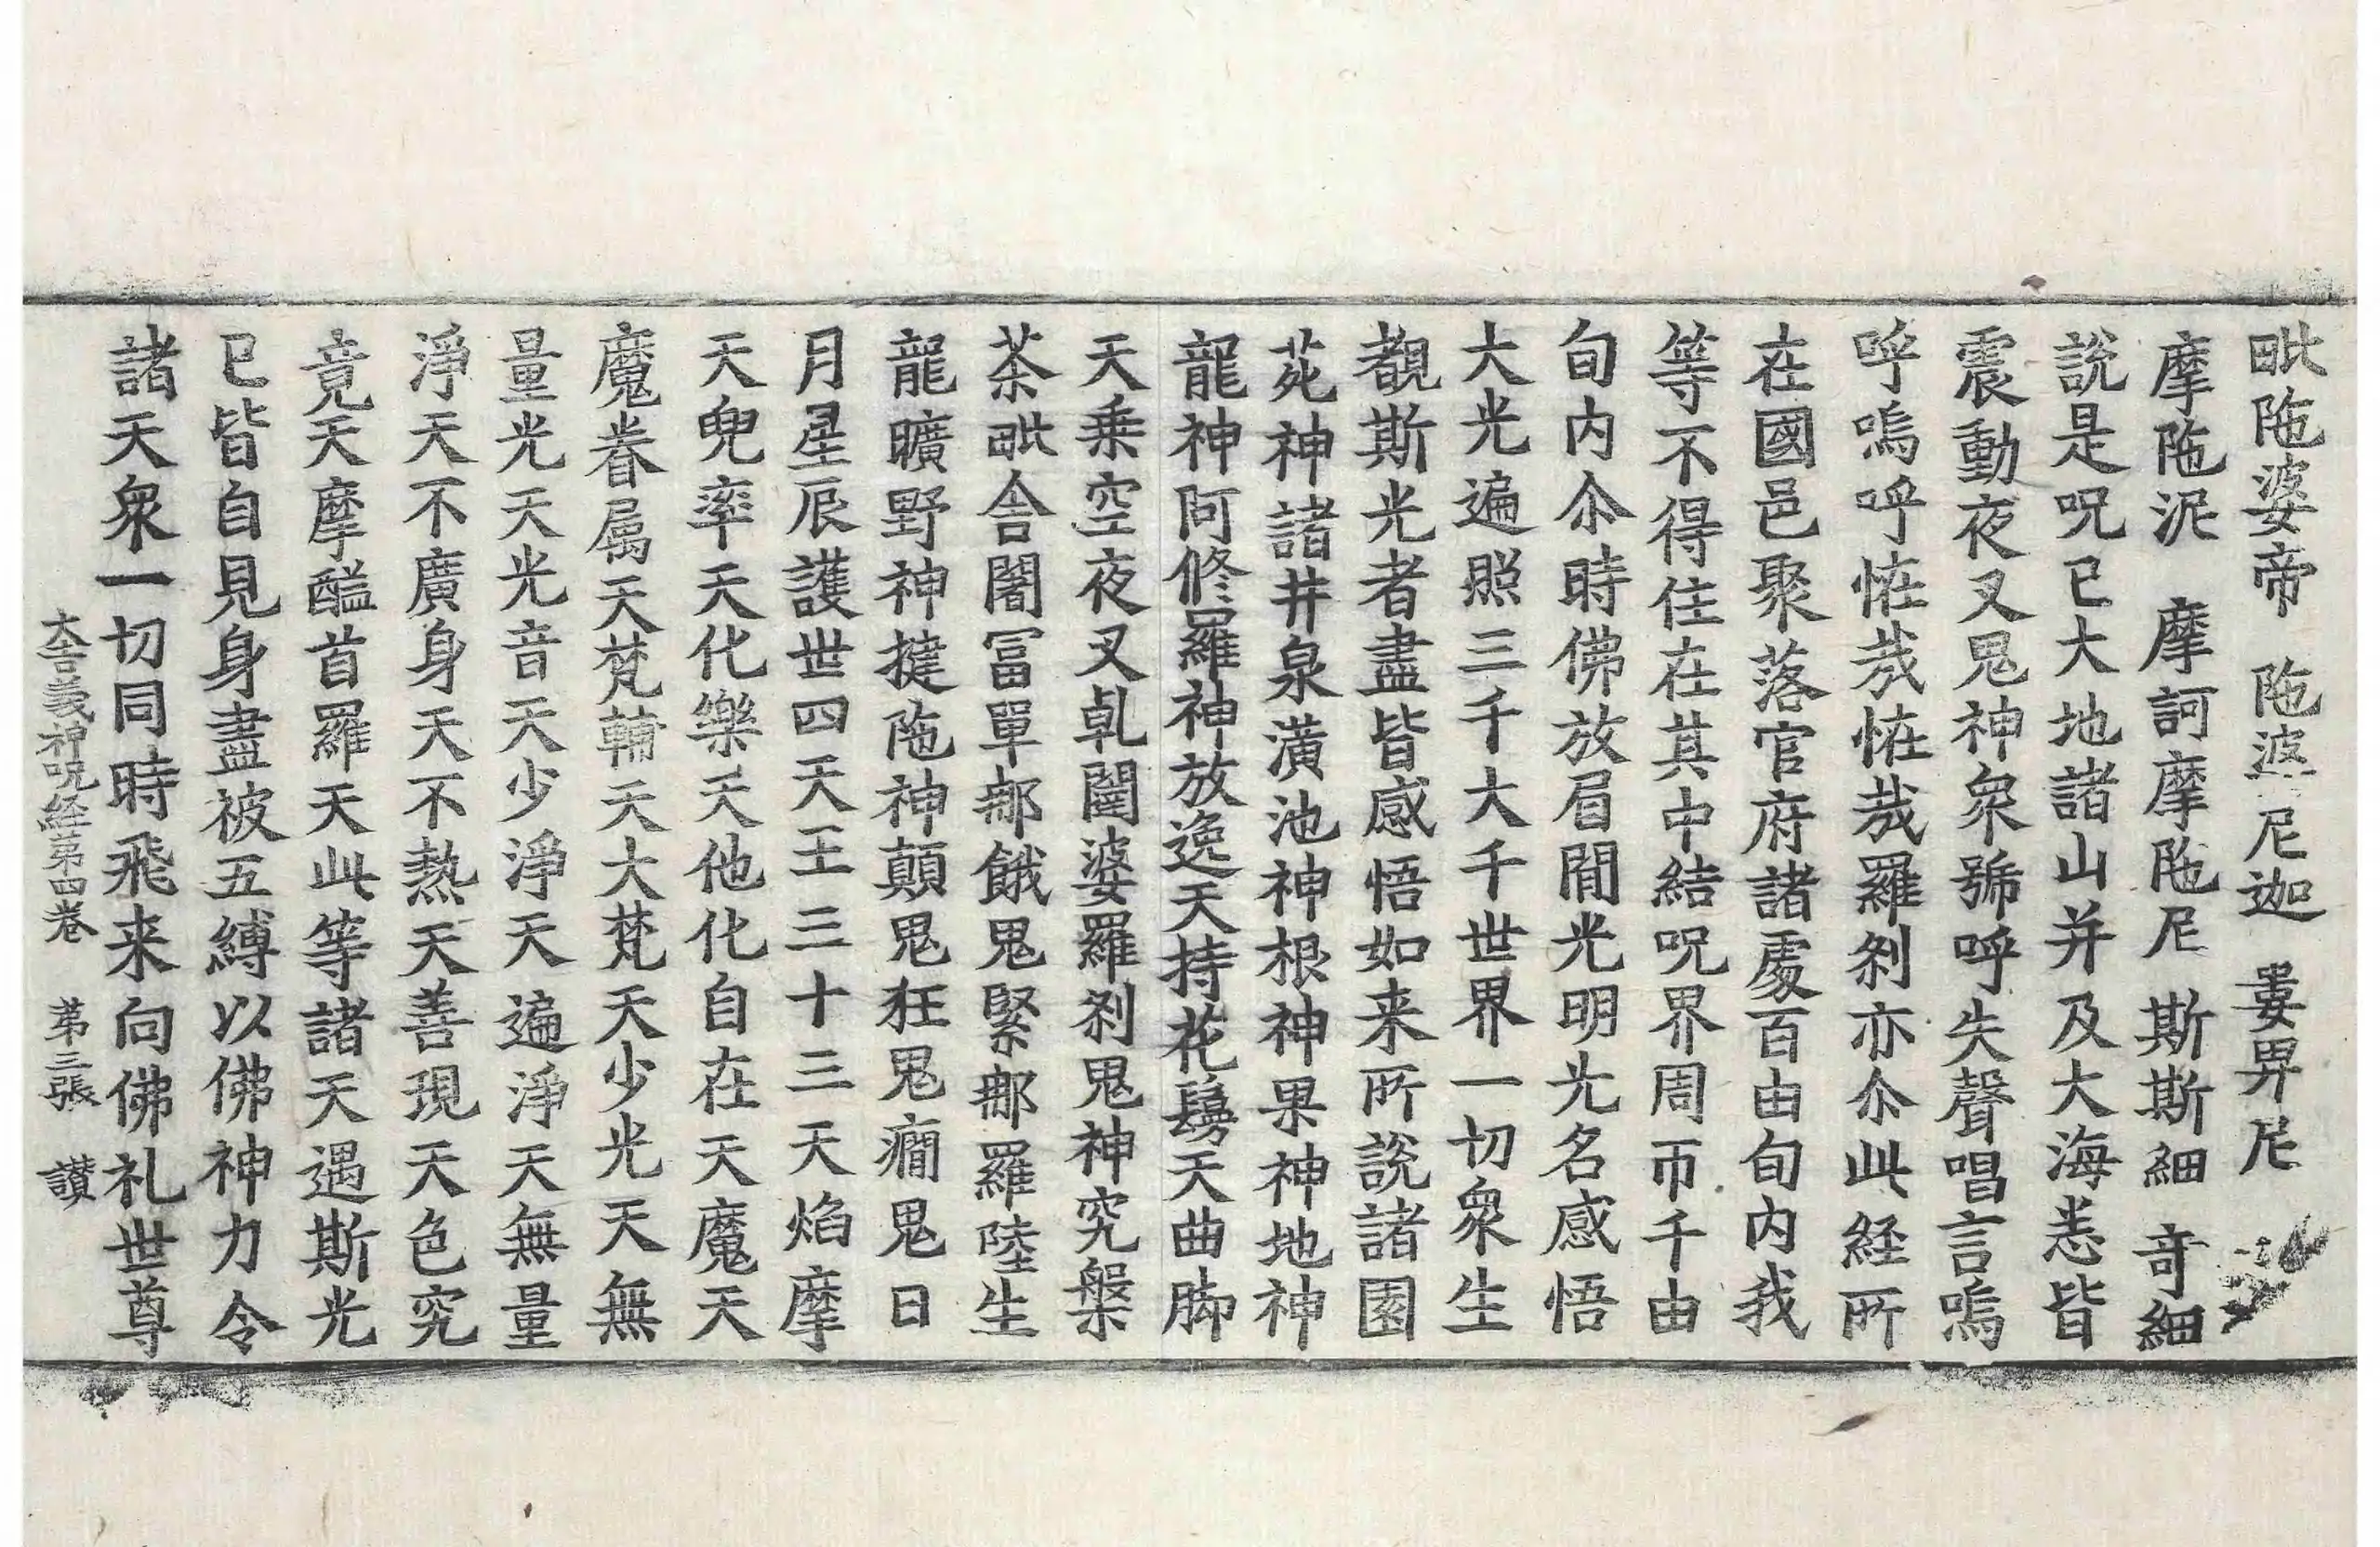 毗陁婆帝　陁婆尼迦　婁畀尼
摩陁泥　摩訶摩陁尼　斯斯細　奇細
說是呪已大地諸山并及大海悉皆
震動夜叉鬼神衆號呼失聲唱言嗚
呼嗚呼恠㦲恠㦲羅刹亦尒此経所
在國邑聚落官府諸處百由旬內我
等不得住在其中結呪界周帀千由
旬内尒時佛放眉間光明光名感悟
大光遍照三千大千世界一切衆生
覩斯光者盡皆感悟如来所說諸園
菀神諸井泉潢池神根神果神地神
龍神阿修羅神放逸天持花鬘天曲脚
天乗空夜叉乹闥婆羅刹鬼神究槃
茶毗舍闍冨單那餓鬼緊那羅陸生
龍曠野神揵陁神顛鬼狂鬼癎鬼日
月星辰護世四天王三十三天焰摩
天兜率天化樂天他化自在天魔天
魔眷属天梵輔天大梵天少光天無
量光天光音天少淨天遍淨天無量
淨天不廣身天不熱天善現天色究
竟天摩醯首羅天此等諸天遇斯光
已皆自見身盡被五縛以佛神力令
諸天衆一切同時飛来向佛礼世尊
大吉義神呪経第四卷　第三張　讃